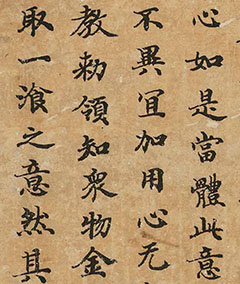 心如是當體此意
不異宜加用心无
教勅領知衆物金
取一湌之意然具